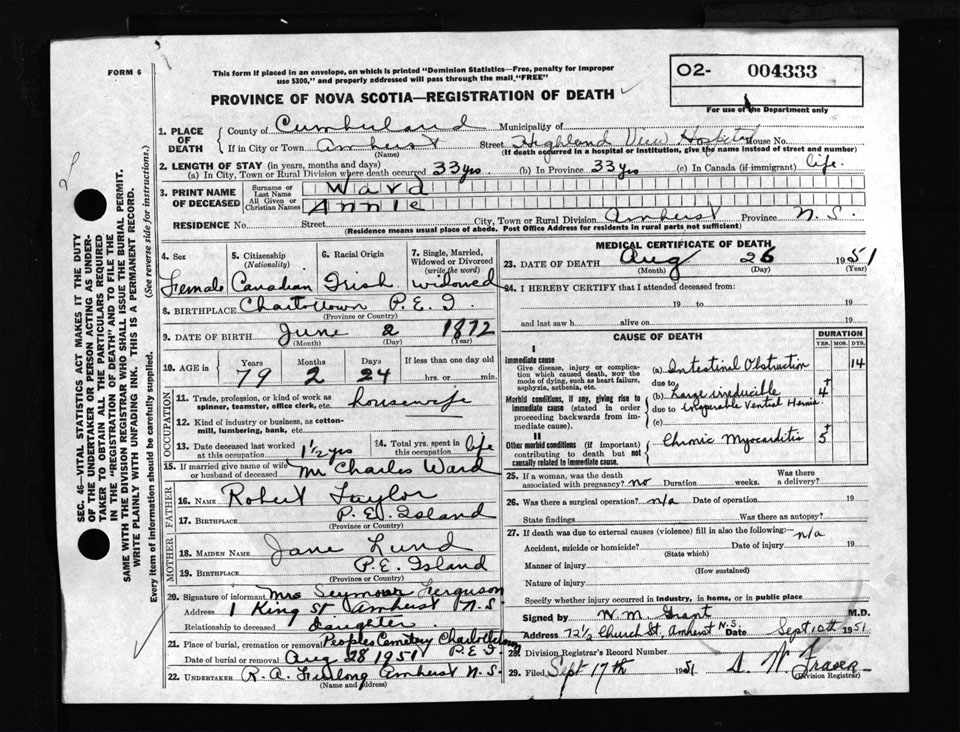 FORM 6
This form if placed in an envelope, on which is printed "Dominion Statistics—Free, penalty for improper
use $300," and properly addressed will pass through the mail "FREE"
PROVINCE OF NOVA SCOTIA—REGISTRATION OF DEATH
O2- 004333
For use of the Department only
1. PLACE OF DEATH
County of Cumberland Municipality of
If in City or Town Amherst Street Highland View Hospital House No.
(Name) (If death occurred in a hospital or institution, give the name instead of street and number)
2. LENGTH OF STAY (in years, months and days)
(a) In City, Town or Rural Division where death occurred 33 yrs (b) In Province 33 yrs (c) In Canada (if immigrant) life.
3. PRINT NAME OF DECEASED
Surname or Last Name Ward
All Given or Christian Names ANNIE
RESIDENCE No. Street City, Town or Rural Division Amherst Province N.S.
(Residence means usual place of abode. Post Office Address for residents in rural parts not sufficient)
4. Sex Female
5. Citizenship (Nationality) Canadian
6. Racial Origin Irish
7. Single, Married, Widowed or Divorced (write the word) widowed
8. BIRTHPLACE Charlottown P.E.I.
(Province or Country)
9. DATE OF BIRTH June 2 1872
(Month) (Day) (Year)
10. AGE in Years Months Days If less than one day old
79 2 24 hrs. or min.
OCCUPATION
11. Trade, profession, or kind of work as spinner, teamster, office clerk, etc. housewife
12. Kind of industry or business, as cotton-mill, lumbering, bank, etc.
13. Date deceased last worked at this occupation 1½ yrs
14. Total yrs. spent in this occupation life
15. If married give name of wife or husband of deceased Mr Charles Ward
FATHER
16. NAME Robert Taylor
17. BIRTHPLACE P.E. Island
(Province or Country)
MOTHER
18. MAIDEN NAME Jane Lund
19. BIRTHPLACE P.E. Island
(Province or Country)
20. Signature of informant Mrs Seymour Ferguson
Address 1 King St Amherst N.S.
Relationship to deceased Daughter
21. Place of burial, cremation or removal Peoples Cemetery Charlottetown P.E.I.
Date of burial or removal Aug 28 1951
22. UNDERTAKER R.A. Furlong Amherst N.S.
(Name and Address)
MEDICAL CERTIFICATE OF DEATH
23. DATE OF DEATH Aug 26 1951
(Month) (Day) (Year)
24. I HEREBY CERTIFY that I attended deceased from:
19 to 19
and last saw h alive on 19
CAUSE OF DEATH DURATION
YRS. MOS. DYS.
I
Immediate cause
Give disease, injury or complication which caused death, not the mode of dying, such as heart failure, asphyxia, asthenia, etc.
(a) Intestinal Obstruction 14
due to
Morbid conditions, if any, giving rise to immediate cause (stated in order proceeding backwards from immediate cause).
(b) Large irreducible 4+
due to Ventral Hernia
(c)
II
Other morbid conditions (if important) contributing to death but not causally related to immediate cause.
Chronic Myocarditis 5+
25. If a woman, was the death associated with pregnancy? no Duration weeks. Was there a delivery?
26. Was there a surgical operation? n/a Date of operation 19
State findings Was there an autopsy?
27. If death was due to external causes (violence) fill in also the following:— n/a
Accident, suicide or homicide? Date of injury 19
(State which)
Manner of injury
(How sustained)
Nature of injury
Specify whether injury occurred in industry, in home, or in public place
Signed by W. M. Grant M.D.
Address 72½ Church St, Amherst N.S. Date Sept 10th 1951
28. Division Registrar's Record Number
29. Filed Sept 17th 1951 D. W. Fraser
(Division Registrar)
SEC. 46—VITAL STATISTICS ACT MAKES IT THE DUTY
OF THE UNDERTAKER OR PERSON ACTING AS UNDER-
TAKER TO OBTAIN ALL THE PARTICULARS REQUIRED
IN THE "REGISTRATION OF DEATH" AND TO FILE THE
SAME WITH THE DIVISION REGISTRAR WHO SHALL ISSUE THE BURIAL PERMIT.
WRITE PLAINLY WITH UNFADING INK. THIS IS A PERMANENT RECORD.
Every item of information should be carefully supplied. (See reverse side for instructions.)